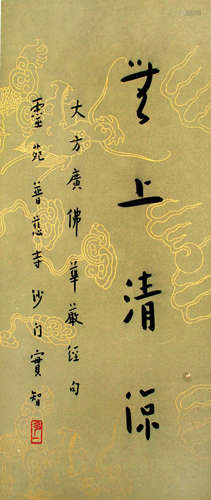 無上清涼
大方廣佛華嚴經句
靈苑普慈寺沙门實智